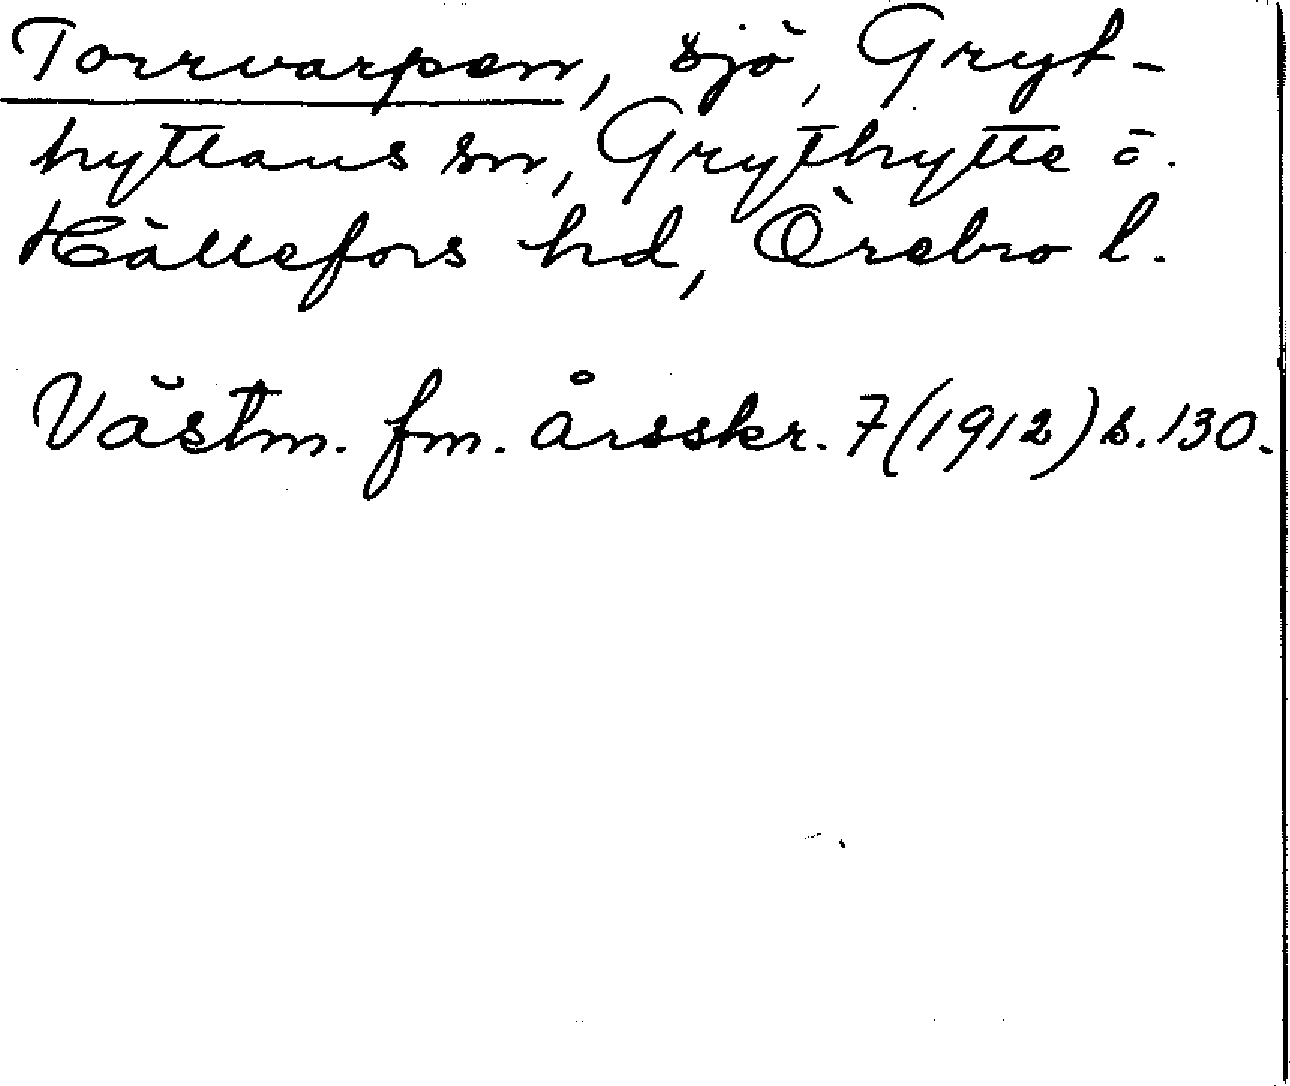 Torrvarpen, sjö, Gryt-
hyttans sn, Grythytte ö.
Hällefors hd, Örebro l.
Västm. fm. årsskr. 7 (1912) s. 130.